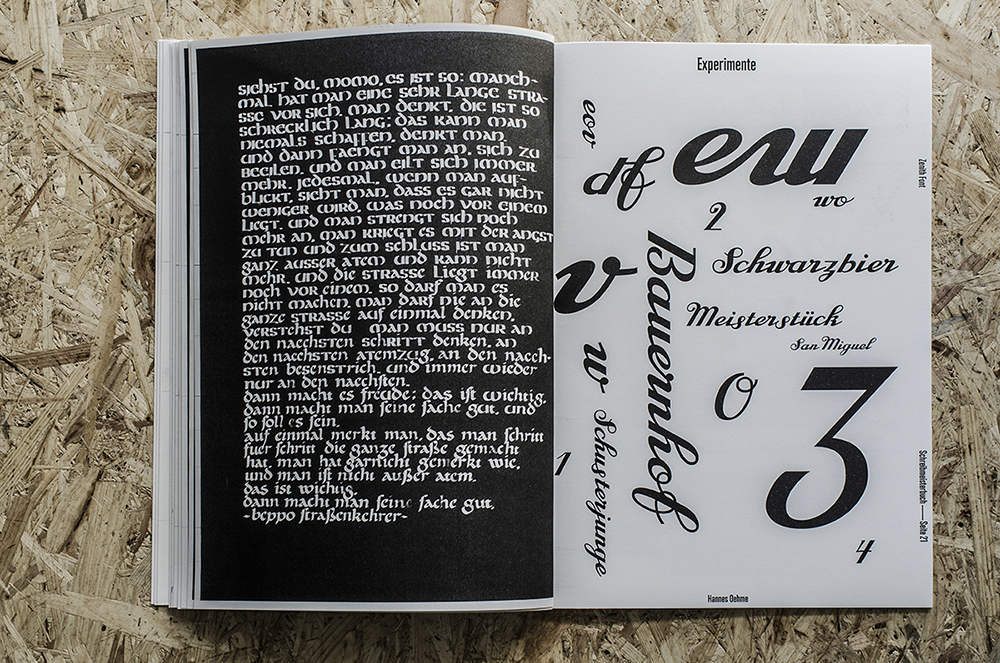 siehst du, momo, es ist so: manch-
mal hat man eine sehr lange stra-
sse vor sich. man denkt, die ist so
schrecklich lang; das kann man
niemals schaffen, denkt man.
und dann faengt man an, sich zu
beeilen. und man eilt sich immer
mehr. jedesmal, wenn man auf-
blickt, sieht man, dass es gar nicht
weniger wird, was noch vor einem
liegt. und man strengt sich noch
mehr an, man kriegt es mit der angst
zu tun und zum schluss ist man
ganz ausser atem und kann nicht
mehr. und die strasse liegt immer
noch vor einem. so darf man es
nicht machen. man darf nie an die
ganze strasse auf einmal denken,
verstehst du man muss nur an
den naechsten schritt denken, an
den naechsten atemzug, an den naech-
sten besenstrich. und immer wieder
nur an den naechsten.
dann macht es freude; das ist wichtig,
dann macht man seine sache gut. und
so soll es sein.
auf einmal merkt man, das man schritt
fuer schritt die ganze straße gemacht
hat. man hat garnicht gemerkt wie,
und man ist nicht außer atem.
das ist wichtig.
dann macht man seine sache gut.
-beppo straßenkehrer-
Experimente
eov
df
ew
wo
2
Zenith Font
Bauernhof
v
Schwarzbier
Meisterstück
San Miguel
w
0
3
Schusterjunge
1
4
Schreibmeisterbuch — Seite 21
Hannes Oehme